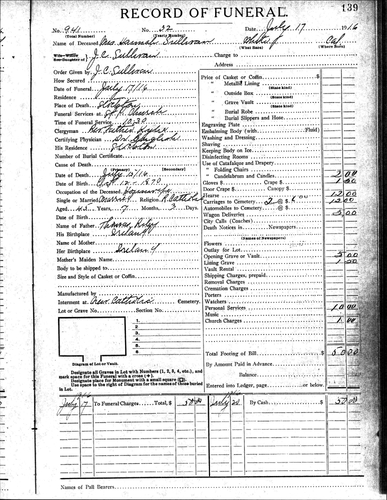 RECORD OF FUNERAL.
139
No. 941
(Total Number)
No. 32
(Yearly Number)
Date July 17 1916
Name of Deceased Mrs Hannah Sullivan
White
Cal
(Where Born)
J.C. Sullivan
Charge to
Address
Order Given by J.C. Sullivan
How Secured
Date of Funeral July 17/16
Place of Death
Funeral Services at Church
Time of Funeral Service 10:30
Clergyman Rev
Certifying Physician Dr
His Residence
Number of Burial Certificate
Cause of Death
Date of Death July 15/16
Date of Birth
Occupation of the Deceased Housewife
Single or Married Married Religion R. Catholic
Aged 43 Years, 9 Months, 3 Days.
Date of Birth
Name of Father Thomas Riley
His Birthplace Ireland
Name of Mother
Her Birthplace Ireland
Mother's Maiden Name
Body to be shipped to
Size and Style of Casket or Coffin
Manufactured by
Interment at Catholic Cemetery.
Lot or Grave No. Section No.
1
2
3
4
5
6
Diagram of Lot or Vault.
Designate all Graves in Lot with Numbers (1, 2, 3, 4, etc.), and
mark space for this Funeral with a cross (+).
Designate place for Monument with a small square (□).
Use space to the right of Diagram for names of those buried
in Lot.
Price of Casket or Coffin
" Metallic Lining
(State Kind)
" Outside Box
(State Kind)
" Grave Vault
(State Kind)
" Burial Robe
(State Kind)
" Burial Slippers and Hose
Engraving Plate
Embalming Body (with Fluid)
Washing and Dressing
Shaving
Keeping Body on Ice
Disinfecting Rooms
Use of Catafalque and Drapery
" Folding Chairs
" Candelabrum and Candles 2.00
Gloves $ Crape $
Door Crape $ Canopy $
Hearse 12.00
Carriages to Cemetery 2 @ $ 12.00
Automobiles to Cemetery @ $
Wagon Deliveries 5.00
City Calls (Coaches)
Death Notices in Newspapers
(Names of Newspapers)
Flowers
Outlay for Lot
Opening Grave or Vault 5.00
Lining Grave 1.00
Vault Rental
Shipping Charges, prepaid
Removal Charges
Cremation Charges
Porters
Watchers
Personal Services 10.00
Music
Church Charges 1.00
Total Footing of Bill $ 50.00
By Amount Paid in Advance
Balance
Entered into Ledger, page or below.
1916
July 17 To Funeral Charges, 50.00
July 20 By Cash 50.00
Names of Pall Bearers